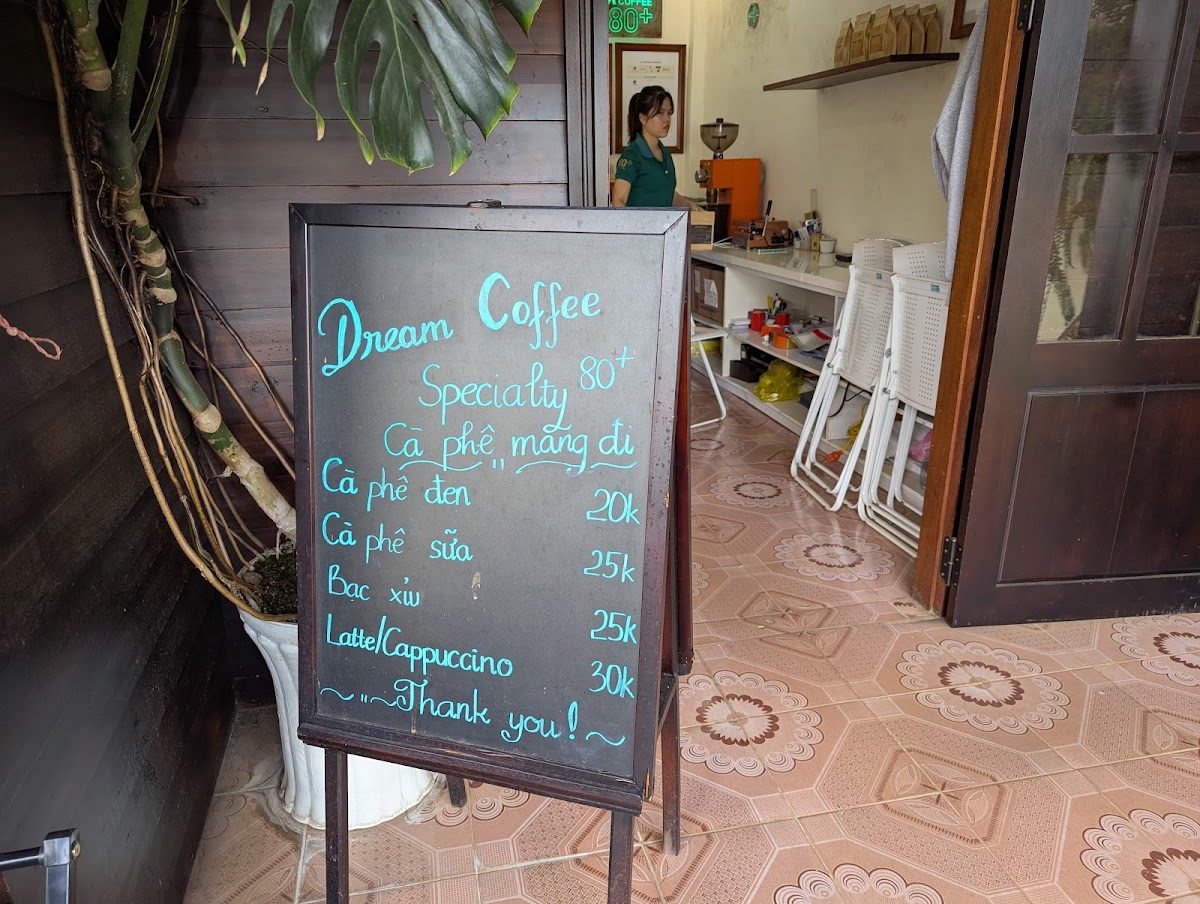 COFFEE
80+
Dream Coffee
Specialty 80+
Cà phê mang đi
Cà phê đen 20k
Cà phê sữa 25k
Bạc xỉu 25k
Latte/Cappuccino 30k
Thank you!